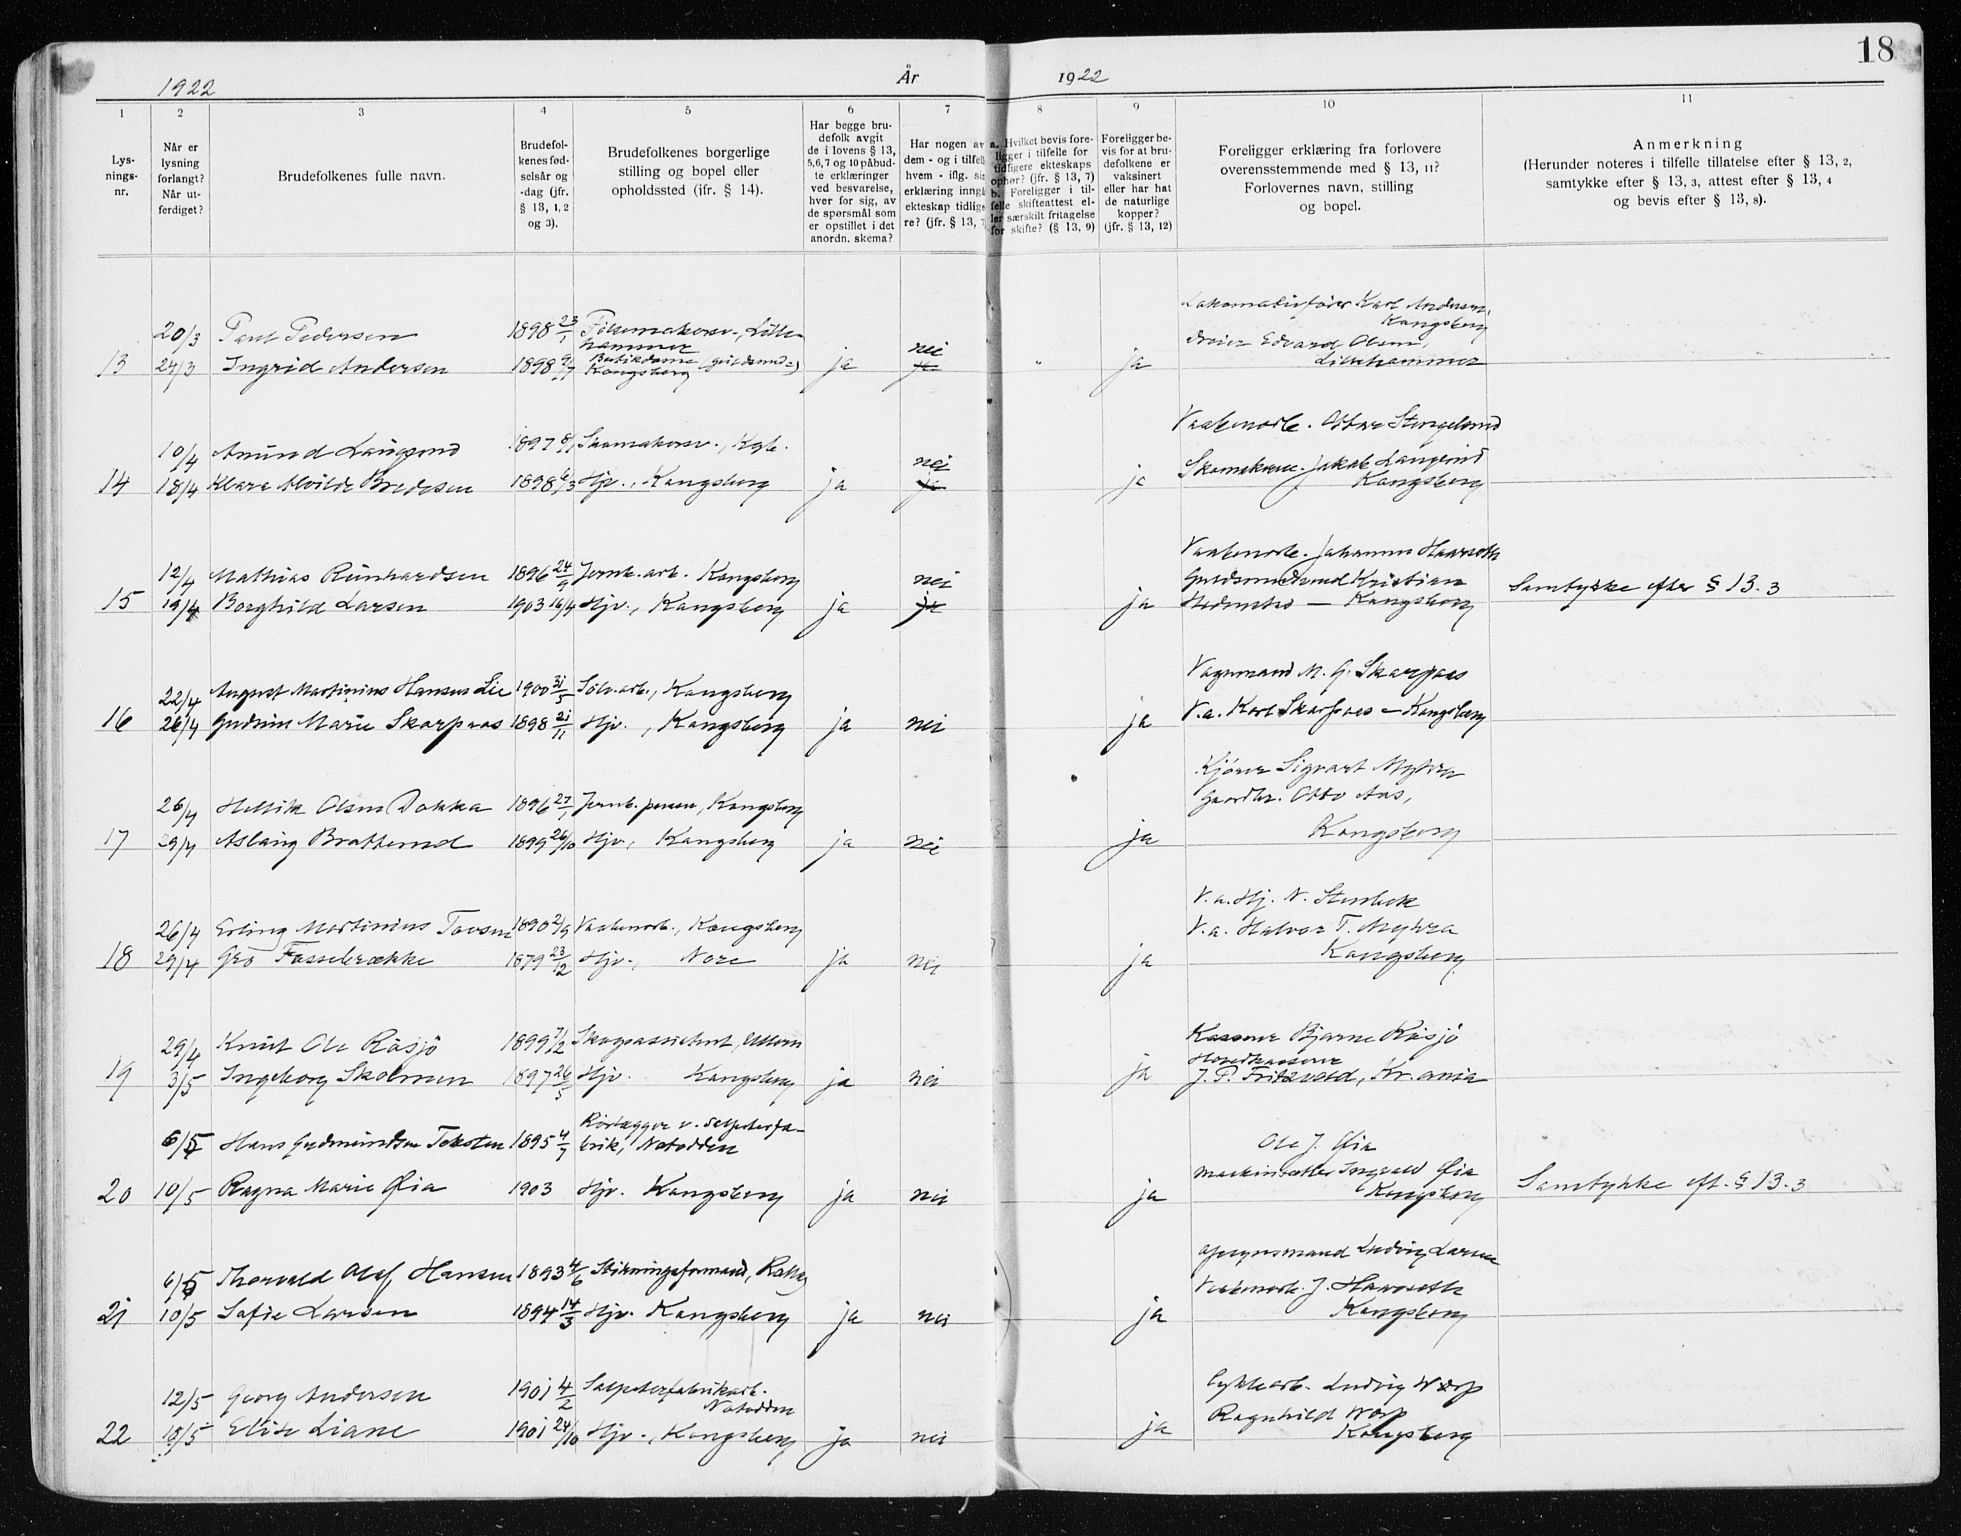 18
1922
År
1922
1
2
3
4
5
6
7
8
9
10
11
Lys-
nings-
nr.
Når er
lysning
forlangt?
Når ut-
ferdiget?
Brudefolkenes fulle navn.
Brudefol-
kenes fød-
selsår og
-dag (jfr.
§ 13, 1, 2
og 3).
Brudefolkenes borgerlige
stilling og bopel eller
opholdssted (jfr. § 14).
Har begge bru-
defolk avgit
de i lovens § 13,
5,6,7 og 10 påbud-
te erklæringer
ved besvarelse,
hver for sig, av
de spørsmål som
er opstillet i det
anordn. skema?
Har nogen av
dem - og i tilfelle
hvem - iflg. sin
erklæring inngåt
ekteskap tidlige-
re? (jfr. § 13, 7
a. Hvilket bevis fore-
ligger i tilfelle for
tidligere ekteskaps
ophør? (jfr. § 13, 7)
b. Foreligger i til-
felle skifteattest el-
ler særskilt fritagelse
for skifte? (§ 13, 9)
Foreligger be-
vis for at bru-
defolkene er
vaksinert
eller har hat
de naturlige
kopper?
(jfr. § 13, 12)
Foreligger erklæring fra forlovere
overensstemmende med § 13, 11?
Forlovernes navn, stilling
og bopel.
Anmerkning
(Herunder noteres i tilfelle tillatelse efter § 13, 2,
samtykke efter § 13, 3, attest efter § 13, 4
og bevis efter § 13, 8).
Lokomotivfører Karl Andersen,
Kongsberg
20/3 Paul Pedersen 1898 23/1 Lille-
hammer
Dreier Edvard Olsen,
Lillehammer
13 24/3 Ingrid Andersen 1898 Butikdame Kongsberg ja nei ja ja
10/4 Anund Laugerud 1897 8/1 Skomakersv., Kgb.
Vaabenarb. Ottar Stengelsrud
14 18/4 Klara Alvilde Bredesen 1898 6/3 Hjv., Kongsberg ja nei ja ja
Skomakersv. Jakob Laugerud
Kongsberg
12/4 Mathias Reinhardsen 1896 24/9 Jernb.arb. Kongsberg
Vaabenarb. Johannes Haavseth
Kristian
15 19/4 Borghild Larsen 1903 16/4 Hjv., Kongsberg ja nei ja ja
Hedenstad — Kongsberg Samtykke efter § 13.3
22/4 August Martinius Hansen Lie 1900 31/5 Sølv.arb., Kongsberg
Vognmand M. G. Skarpaas
16 26/4 Gudrun Marie Skarpaas 1898 21/11 Hjv., Kongsberg ja nei ja
V.a. Karl Skarpaas — Kongsberg
26/4 Hellik Olsen Dokka 1896 27/1 Jernb., Kongsberg
Kjører Sigvart Myhra
Gaardbr. Otto Aas,
17 29/4 Aslaug Bratterud 1899 26/10 Hjv., Kongsberg ja nei ja Kongsberg
26/4 Erling Martinius Tovsen 1890 2/9 Vaabenarb., Kongsberg
V.a. Hj. N. Stenbek
V.a. Halvor T. Myhra
18 29/4 Gro Fossebrække 1879 23/12 Hjv., Nore ja nei ja Kongsberg
29/4 Knut Ole Råsjø 1899 7/12 Skogassistent,
Kasserer Bjarne Råsjø
Hovedkasserer
19 3/5 Ingeborg Skolmen 1897 26/5 Hjv. Kongsberg ja nei ja J. P. Fritzvold, Kr.ania
6/5 Hans Gudmundsen Teksten 1895 4/7 Rørlægger v. Salpeterfa-
brik, Notodden
Ole J. Øia
20 10/5 Ragna Marie Øia 1903 Hjv. Kongsberg ja nei ja
Maskinsetter Ingvald Øia
Kongsberg Samtykke eft. § 13.3
6/5 Thorvald Olaf Hansen 1893 4/6
Opsynsmand Ludvig Larsen
Vaabenarb. J. Haavseth
21 10/5 Sofie Larsen 1894 14/3 Hjv. Kongsberg ja nei ja Kongsberg
12/5 Georg Andersen 1901 4/2 Salpeterfabrikarb.
Notodden
Cyklearb. Ludvig Worp
Ragnhild Worp
22 18/5 Elise Liane 1901 24/10 Hjv., Kongsberg ja nei ja Kongsberg